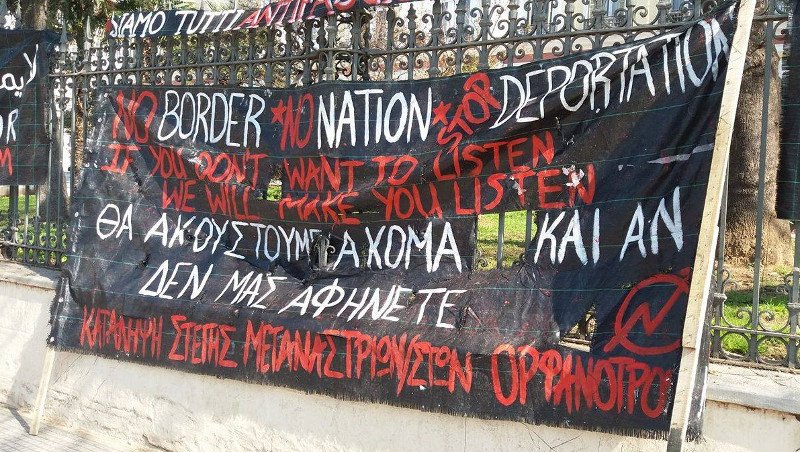 SIAMO TUTTI ANTIFAS
NO BORDER *NO NATION* STOP DEPORTATION
IF YOU DON'T WANT TO LISTEN
WE WILL MAKE YOU LISTEN
ΘΑ ΑΚΟΥΣΤΟΥΜΕ ΑΚΟΜΑ ΚΑΙ ΑΝ
ΔΕΝ ΜΑΣ ΑΦΗΝΕΤΕ
ΚΑΤΑΛΗΨΗ ΣΤΕΓΗΣ ΜΕΤΑΝΑΣΤΡΙΩΝ/ΣΤΩΝ ΟΡΦΑΝΟΤΡΟ